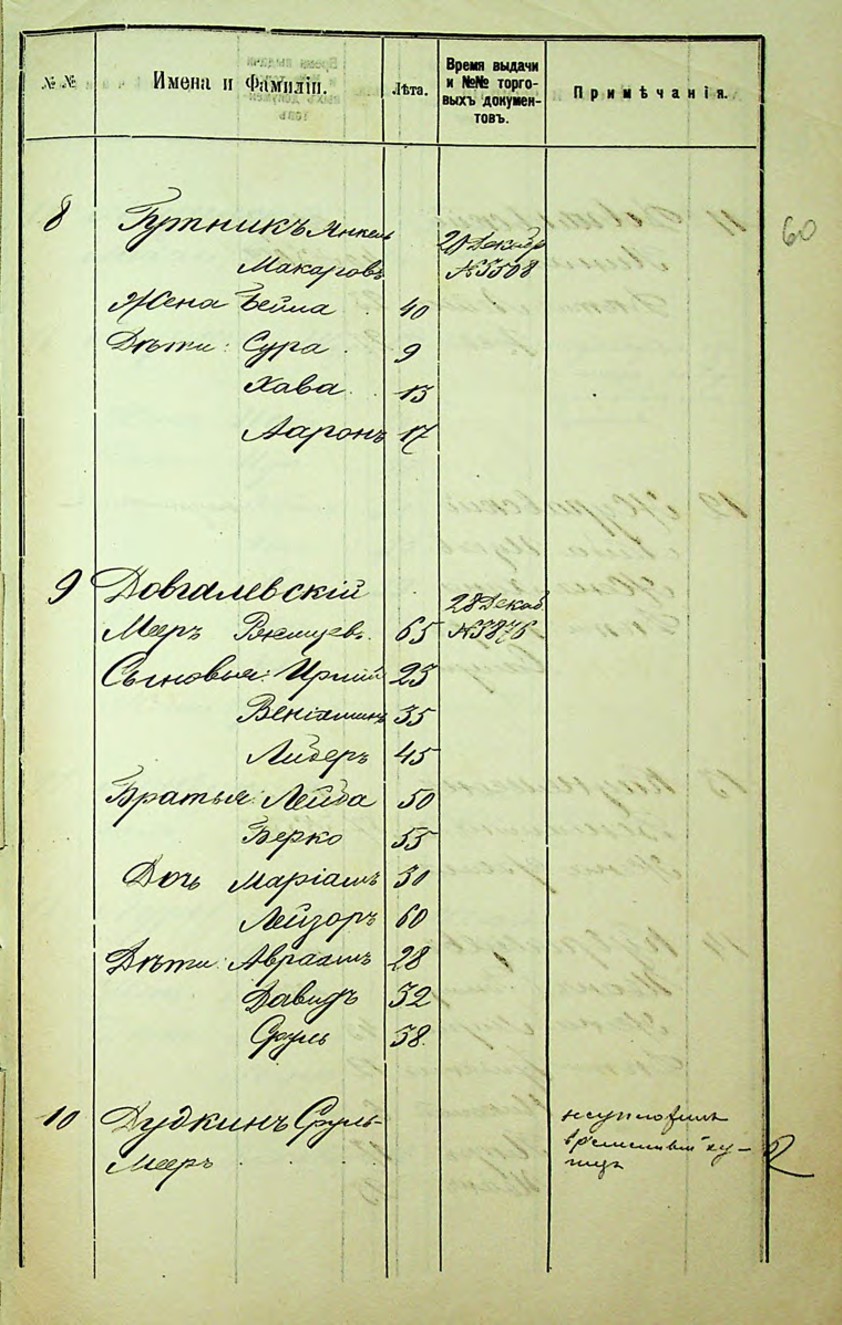 № №
Имена и Фамиліи.
Лѣта.
Время выдачи
и №№ торго-
выхъ докумен-
товъ.
Примѣчанія.
60
8 Бутникъ Янкель 21 Декабр
Макаровъ №5508
Жена Бейла 40
Дѣти: Сура 9
Хава 13
Ааронъ 17
9 Довгалевскій 28 Декаб.
Мееръ 65 №5876
Сыновья: 25
Веніаминъ 35
Либеръ 45
Братья: Лейба 50
Берко 55
Дочь Маріамъ 30
Лейзоръ 60
Дѣти: Авраамъ 28
Давидъ 32
Сруль 38.
10 Дудкинъ Сруль-
Мееръ
временный ку-
пецъ